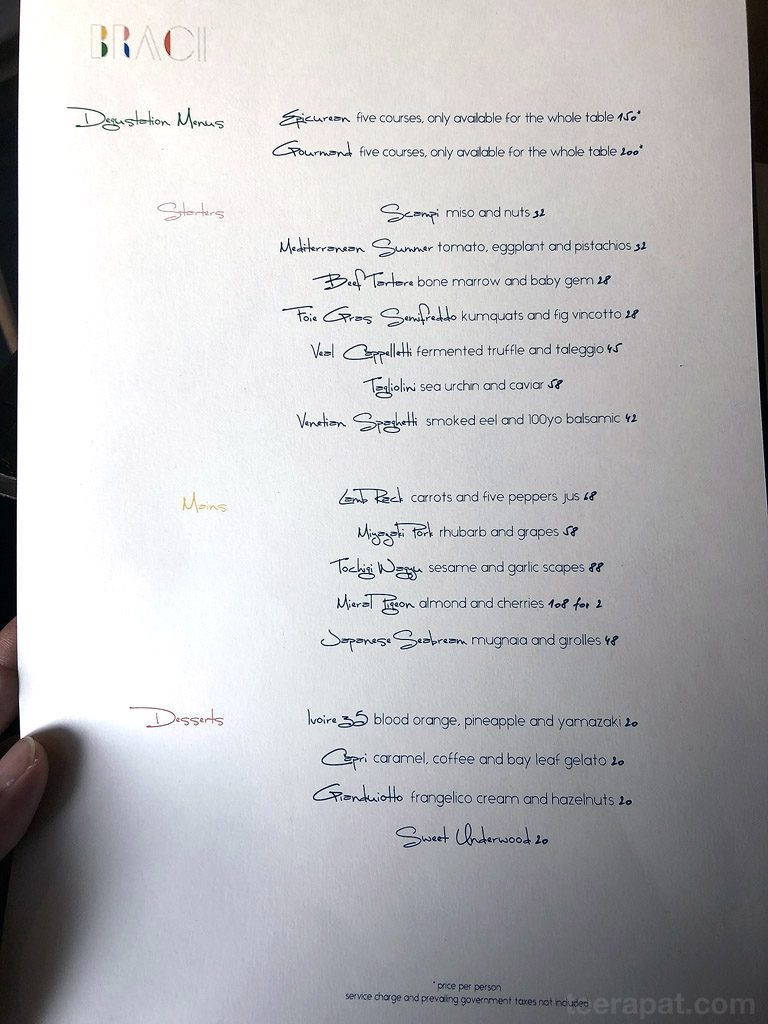 BRACI
Degustation Menus
Epicurean five courses, only available for the whole table 150*
Gourmand five courses, only available for the whole table 200*
Starters
Scampi miso and nuts 32
Mediterranean Summer tomato, eggplant and pistachios 32
Beef Tartare bone marrow and baby gem 28
Foie Gras Semifreddo kumquats and fig vincotto 28
Veal Cappelletti fermented truffle and taleggio 45
Tagliolini sea urchin and caviar 58
Venetian Spaghetti smoked eel and 100yo balsamic 42
Mains
Lamb Rack carrots and five peppers jus 68
Miyazaki Pork rhubarb and grapes 58
Tochigi Wagyu sesame and garlic scapes 88
Mieral Pigeon almond and cherries 108 for 2
Japanese Seabream mugnaia and girolles 48
Desserts
Ivoire 35 blood orange, pineapple and yamazaki 20
Capri caramel, coffee and bay leaf gelato 20
Gianduiotto frangelico cream and hazelnuts 20
Sweet Underwood 20
* price per person
service charge and prevailing government taxes not included
teerapat.com